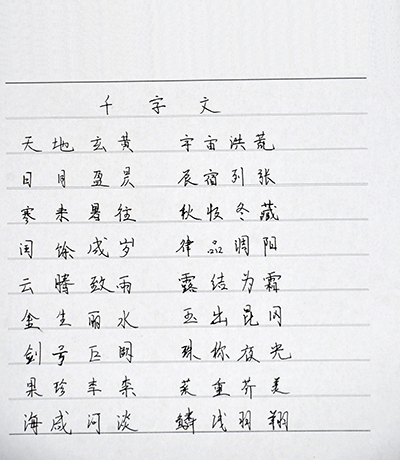 千字文
天地玄黄 宇宙洪荒
日月盈昃 辰宿列张
寒来暑往 秋收冬藏
闰馀成岁 律品调阳
云腾致雨 露结为霜
金生丽水 玉出昆冈
剑号巨阙 珠称夜光
果珍李柰 菜重芥美
海咸河淡 鳞浅羽翔